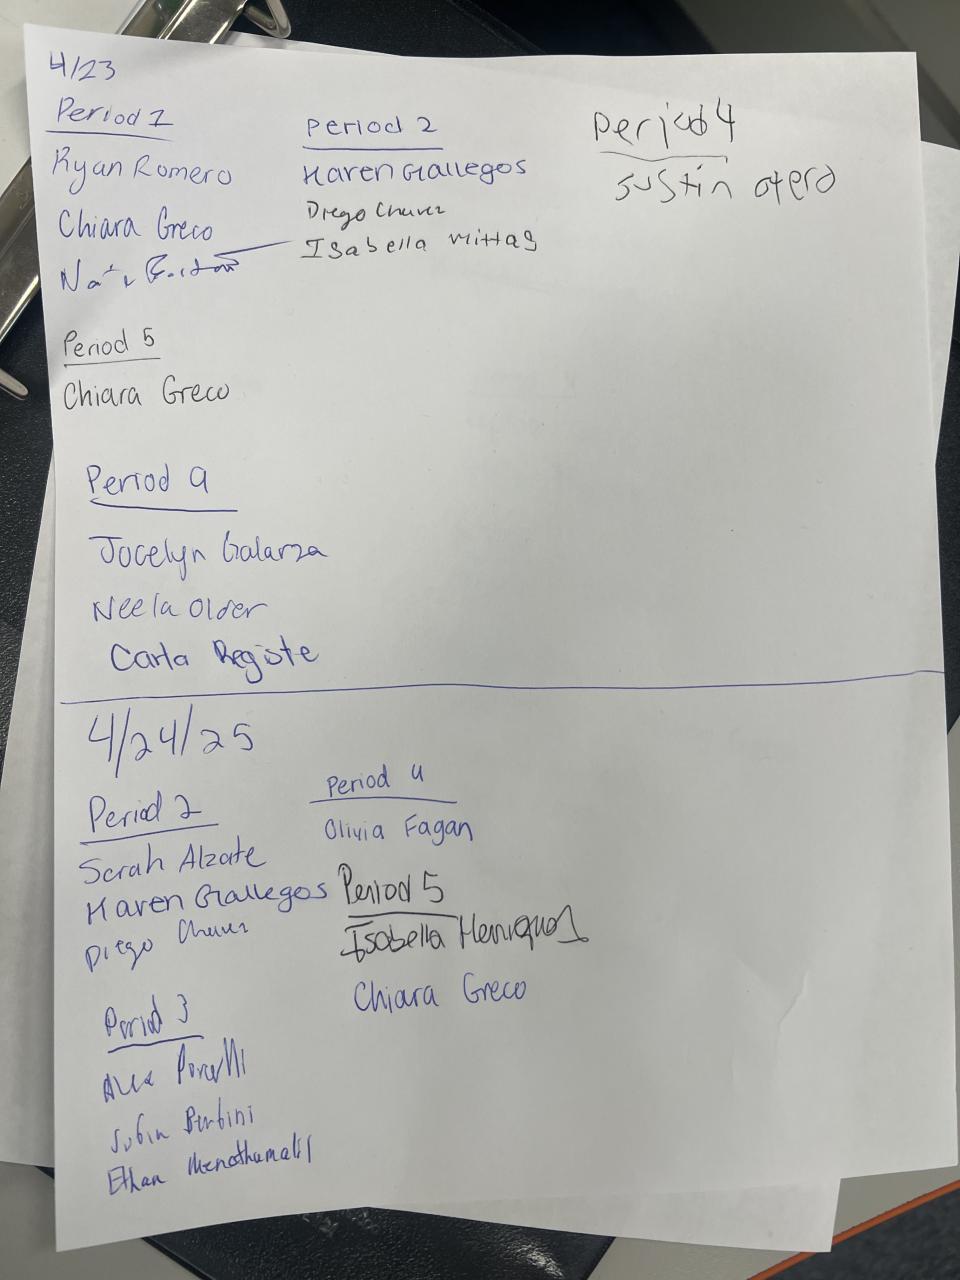 4/23
Period 1
Ryan Romero
Chiara Greco
Period 2
Karen Gallegos
Diego Chavez
Isabella
Period 4
Justin otero
Period 5
Chiara Greco
Period 9
Jocelyn Galarza
Neela Older
Carla Registe
4/24/25
Period 2
Sarah Alzate
Karen Gallegos
Diego Chavez
Period 3
Alex
Ethan
Period 4
Olivia Fagan
Period 5
Isabella Henriquez
Chiara Greco